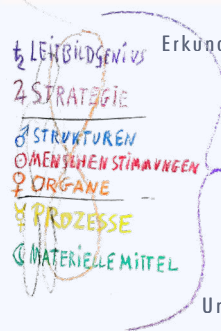 ♄ LEITBILDGENIUS
Erkund
♃ STRATEGIE
♂ STRUKTUREN
☉ MENSCHEN STIMMUNGEN
♀ ORGANE
☿ PROZESSE
☾ MATERIELLE MITTEL
Un